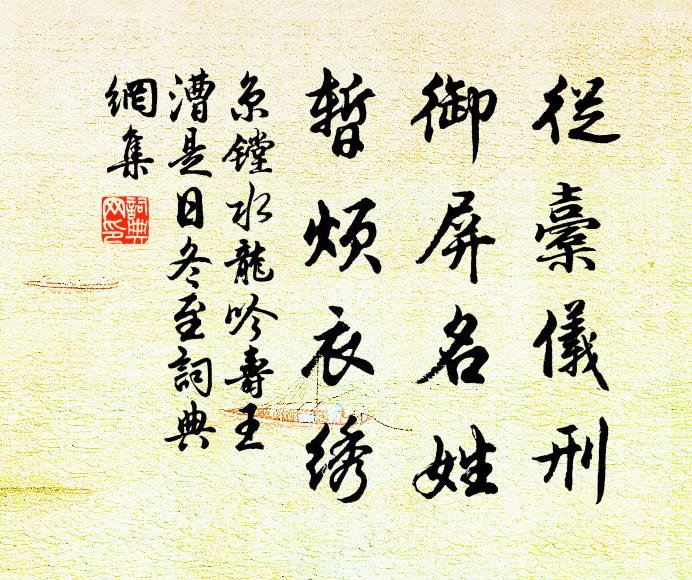 從橐儀刑
御屏名姓
暫煩衣绣
京鏜水龍吟壽王
漕是日冬至詞典
網集
詞典
网印